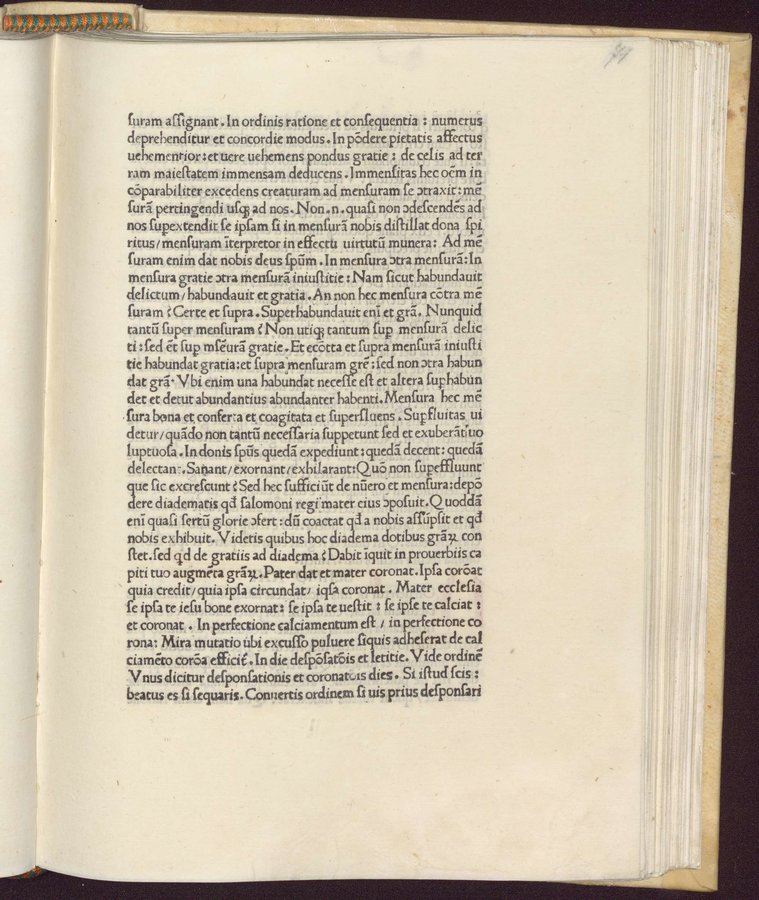 suram assignant. In ordinis ratione et consequentia : numerus
deprehenditur et concordie modus. In põdere pietatis affectus
uehementior: et uere uehemens pondus gratie : de celis ad ter
ram maiestatem immensam deducens. Immensitas hec oẽm in
cõparabiliter excedens creaturam ad mensuram se ɔtraxit: mẽ
surã pertingendi usqꝫ ad nos. Non .n. quasi non ɔdescendẽs ad
nos suꝑextendit se ipsam si in mensurã nobis distillat dona spi
ritus/ mensuram ĩterpretor in effectu uirtutũ munera: Ad mẽ
suram enim dat nobis deus spũm. In mensura ɔtra mensurã: In
mensura gratie ɔtra mensurã iniustitie : Nam sicut habundauit
delictum/ habundauit et gratia. An non hec mensura cõtra mẽ
suram ? Certe et supra. Superhabundauit enĩ et grã. Nunquid
tantũ super mensuram ? Non utiqꝫ tantum suꝑ mensurã delic
ti : sed ẽt suꝑ msẽurã gratie. Et ecõtta et supra mensurã iniusti
tie habundat gratia: et supra mensuram grẽ : sed non ɔtra habun
dat grã. Vbi enim una habundat necesse est et altera suꝑhabun
det et detut abundantius abundanter habenti. Mensura hec mẽ
sura bona et conferta et coagitata et supersluens. Suꝑfluitas ui
detur/ quãdo non tantũ necessaria suppetunt sed et exuberãt uo
luptuosa. In donis spũs quedã expediunt : quedã decent: quedã
delectant. Sanant/ exornant/ exhilarant: Quõ non suꝑeffluunt
que sic excrescunt ? Sed hec sufficiũt de nũero et mensura: depõ
dere diadematis qđ salomoni regi mater eius ɔposuit. Quoddã
enĩ quasi sertũ glorie ɔfert : dũ coactat qđ a nobis assũpsit et qđ
nobis exhibuit. Videtis quibus hoc diadema dotibus grãꝝ con
stet. sed qđ de gratiis ad diadema ? Dabit ĩquit in prouerbiis ca
piti tuo augmẽta grãꝝ. Pater dat et mater coronat. Ipsa corõat
quia credit/ quia ipsa circundat/ iqsa coronat . Mater ecclesia
se ipsa te iesu bone exornat: se ipsa te uestit : se ipse te calciat :
et coronat . In perfectione calciamentum est / in perfectione co
rona: Mira mutatio ubi excusso puluere siquis adheserat de cal
ciamẽto corõa efficit̃. In die despõsatõis et letitie. Vide ordinẽ
Vnus dicitur desponsationis et coronatõis dies. Si istud scis :
beatus es si sequaris. Conuertis ordinem si uis prius desponsari